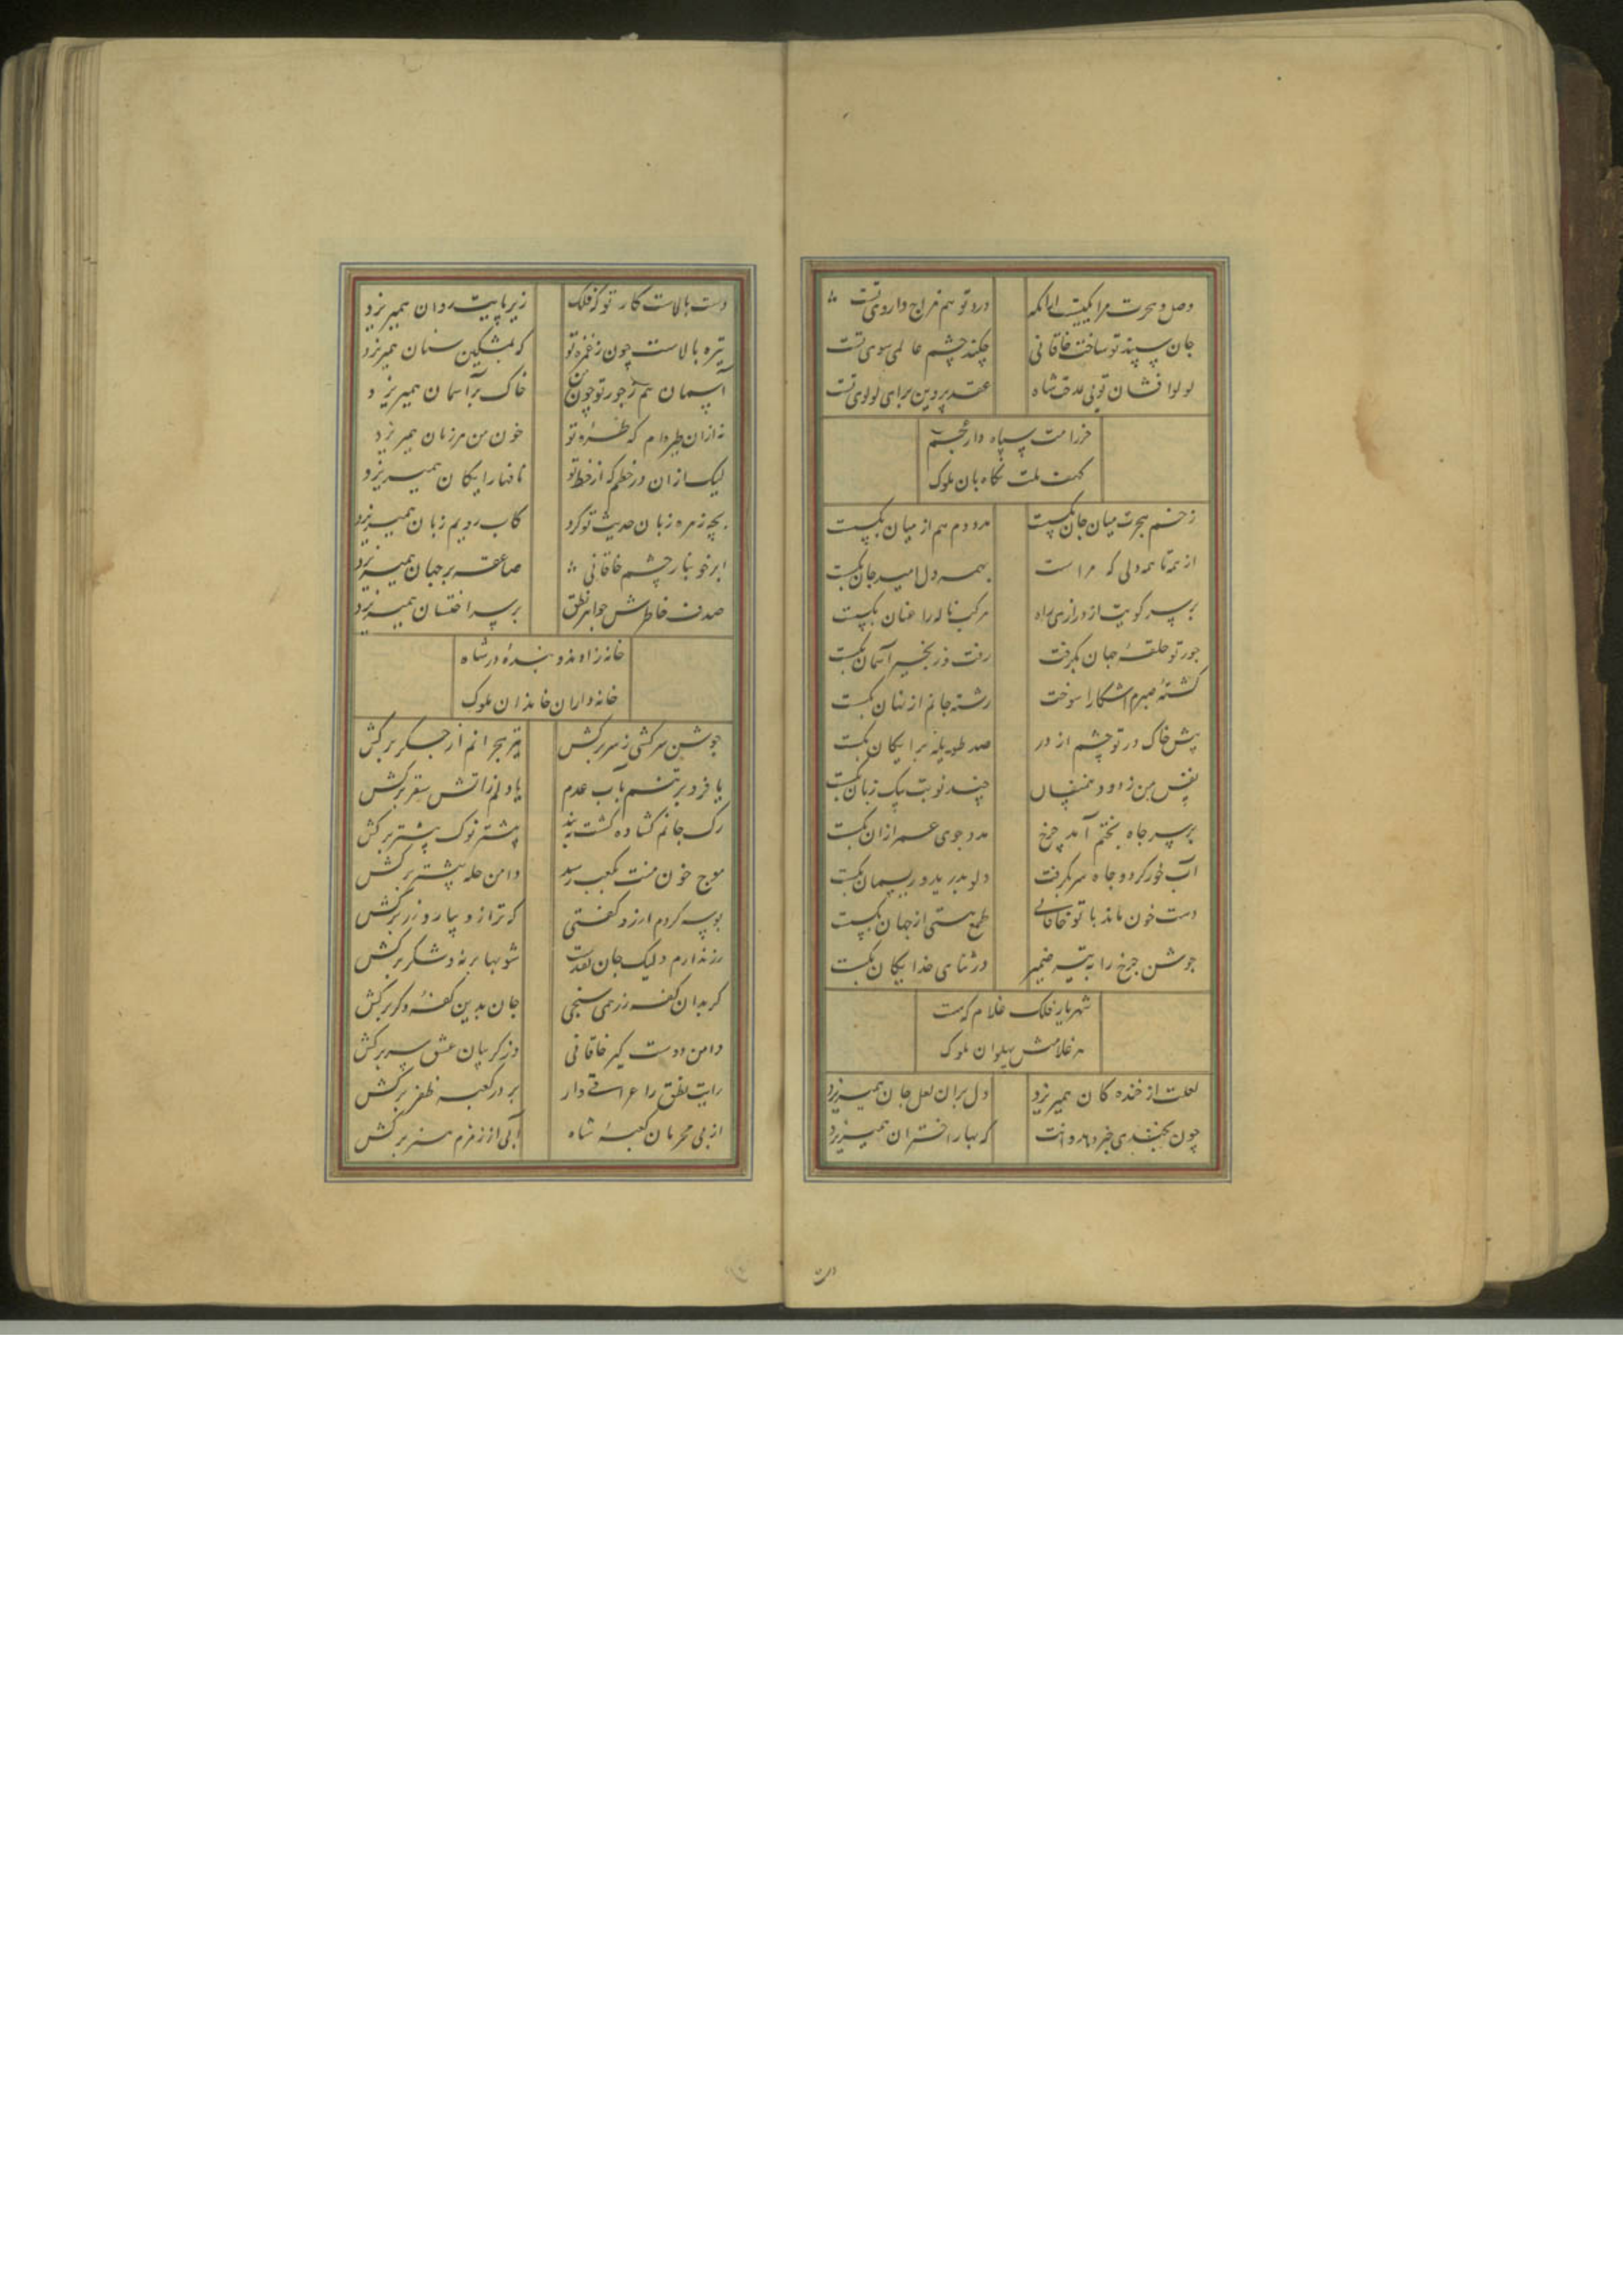 وصل و هجرت مرا یکیست ازانکه درد تو هم مزاج داروی تست
جان سپند تو ساخت خاقانی چکند چشم عالمی سوی تست
لولوافشان تویی بمدحت شاه عقد پروین برای لولوی تست
حرز امت سپاه دار عجم
کهف ملت نگاه بان ملوک
زخم هجرت میان جان بگسست مدد دم هم از میان بگسست
از همه تا همه دلی که مراست بهمه دل امید جان بگسست
بر سر کویت از درازی راه مرکب ناله را عنان بگسست
جور تو حلقه جهان بگرفت رفت و زنجیر آسمان بگسست
کشته صبرم آشکارا سوخت رشته جانم از نهان بگسست
پیش خاک در تو چشم از در صد طویله برایکان بگسست
نفس من ز دود همنفسان چند نوبت بیک زبان بگسست
بر سر چاه بختم آمد چرخ مدد جوی عمر ازان بگسست
آب خور کرد و چاه سر بگرفت دلو بدرید و ریسمان بگسست
دست خون ماند با تو خاقانی طمع هستی از جهان بگسست
جوشن چرخ را به تیر ضمیر در ثنای خدایکان بگسست
شهریار فلک غلام که هست
هر غلامش پهلوان ملوک
لعلت از خنده کان همیریزد دل بران لعل جان همیریزد
چون بخندی خبر دهد دهانت که بهار اختران همیریزد
دست بالاست کار تو که فلک زیر پایت روان همیریزد
تیره بالاست چون ز غمزه تو که بمشکین سنان همیریزد
آسمان هم ز جور تو چون من خاک بر آسمان همیریزد
نه ازان طیره‌ام که طره تو خون من هر زمان همیریزد
لیک ازان در خطم که از خط تو نافها رایکان همیریزد
بچه زهره زبان حدیث تو کرد کاب رویم زبان همیریزد
ابر خونبار چشم خاقانی صاعقه بر جهان همیریزد
صدف خاطرش جواهر نطق بر سر اخستان همیریزد
خانه زادند و بنده در شاه
خانه داران خاندان ملوک
جوشن سرکشی ز سر برکش تیر هجرانم از جگر برکش
یا فرو بر تنم بآب عدم یا دلم زاتش سقر برکش
رک جانم کشاده کشت ببند پیشتر نوک نیشتر برکش
موج خون منت بکعب رسد دامن حله پیشتر برکش
بوسه کردم آرزو گفتی که ترازو بیار و زر برکش
زر ندارم ولیک جان نقدست شو بها بر نه و شکر برکش
کر بدان کفه زر همی سنجی جان بدین کفه دگر برکش
دامن دوست گیر خاقانی وز گریبان عشق سر برکش
رایت نطق را عراقی دار بر در کعبه ظفر برکش
از پی محرمان کعبه شاه آبی از زمزم هنر برکش